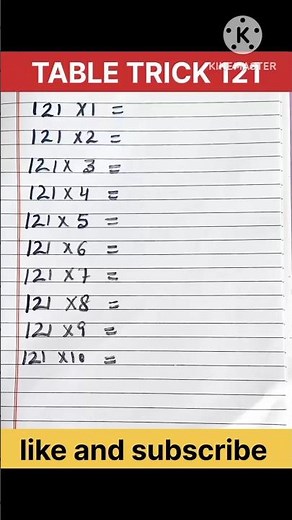 KINEMASTER
TABLE TRICK 121
121 X1 =
121 X2 =
121 X 3 =
121 X 4 =
121 X 5 =
121 X 6 =
121 X 7 =
121 X8 =
121 X 9 =
121 X10 =
like and subscribe